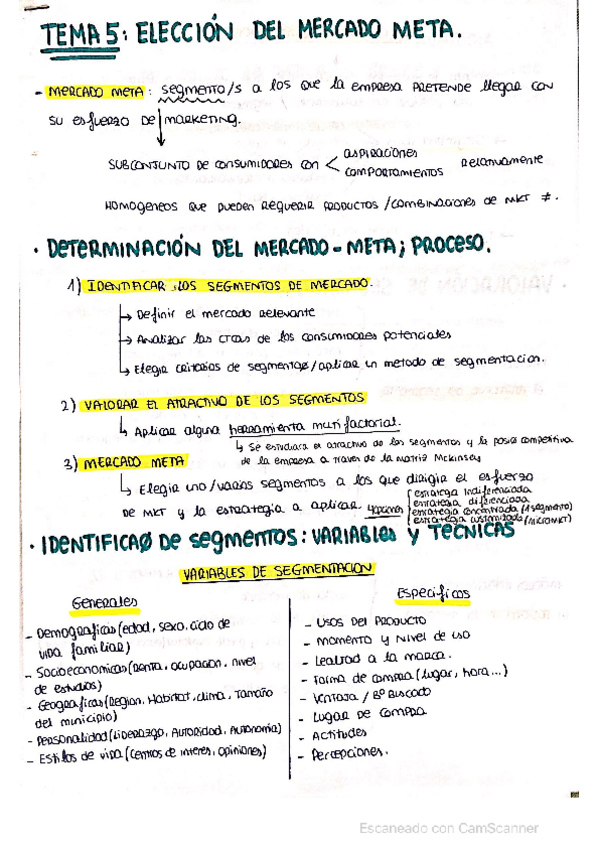 TEMA 5: ELECCIÓN DEL MERCADO META.
- MERCADO META: segmento/s a los que la empresa pretende llegar con
su esfuerzo de marketing.
SUBCONJUNTO DE CONSUMIDORES CON < aspiraciones
comportamientos relativamente
HOMOGENEOS que pueden requerir productos/combinaciones de MKT ≠.
· Determinación del mercado-meta; proceso.
1) IDENTIFICAR LOS SEGMENTOS DE MERCADO.
↳ Definir el mercado relevante
↳ Analizar las ctcas de los consumidores potenciales
↳ Elegir criterios de segmentar/aplicar un metodo de segmentacion.
2) VALORAR EL ATRACTIVO DE LOS SEGMENTOS
↳ Aplicar alguna herramienta multifactorial.
↳ Se estudiara el atractivo de los segmentos y la posic competitiva
de la empresa a traves de la matriz Mckinsey
3) MERCADO META
↳ Elegir uno/varios segmentos a los que dirigir el esfuerzo
de MKT y la estrategia a aplicar
estrategia indiferenciada
estrategia diferenciada
estrategia concentrada (1 segmento)
estrategia customizada (MICROMKT)
· IDENTIFICAØ DE segmentos: VARIABLES Y TECNICAS
VARIABLES DE SEGMENTACION
Generales
- Demograficas (edad, sexo, ciclo de
vida familiar)
- Socioeconomicas (Renta, ocupacion, nivel
de estudios)
- Geograficas (Region, Habitat, clima, Tamaño
del municipio)
- Personalidad (Liderazgo, Autoridad, Autonomia)
- Estilos de vida (Centros de interes, opiniones)
Especificas
- USOS DEL PRODUCTO
- MOMENTO y Nivel de uso
- Lealtad a la marca.
- Forma de compra (lugar, hora...)
- Ventaja / Bº Buscado
- Lugar de compra
- Actitudes
- Percepciones.
Escaneado con CamScanner